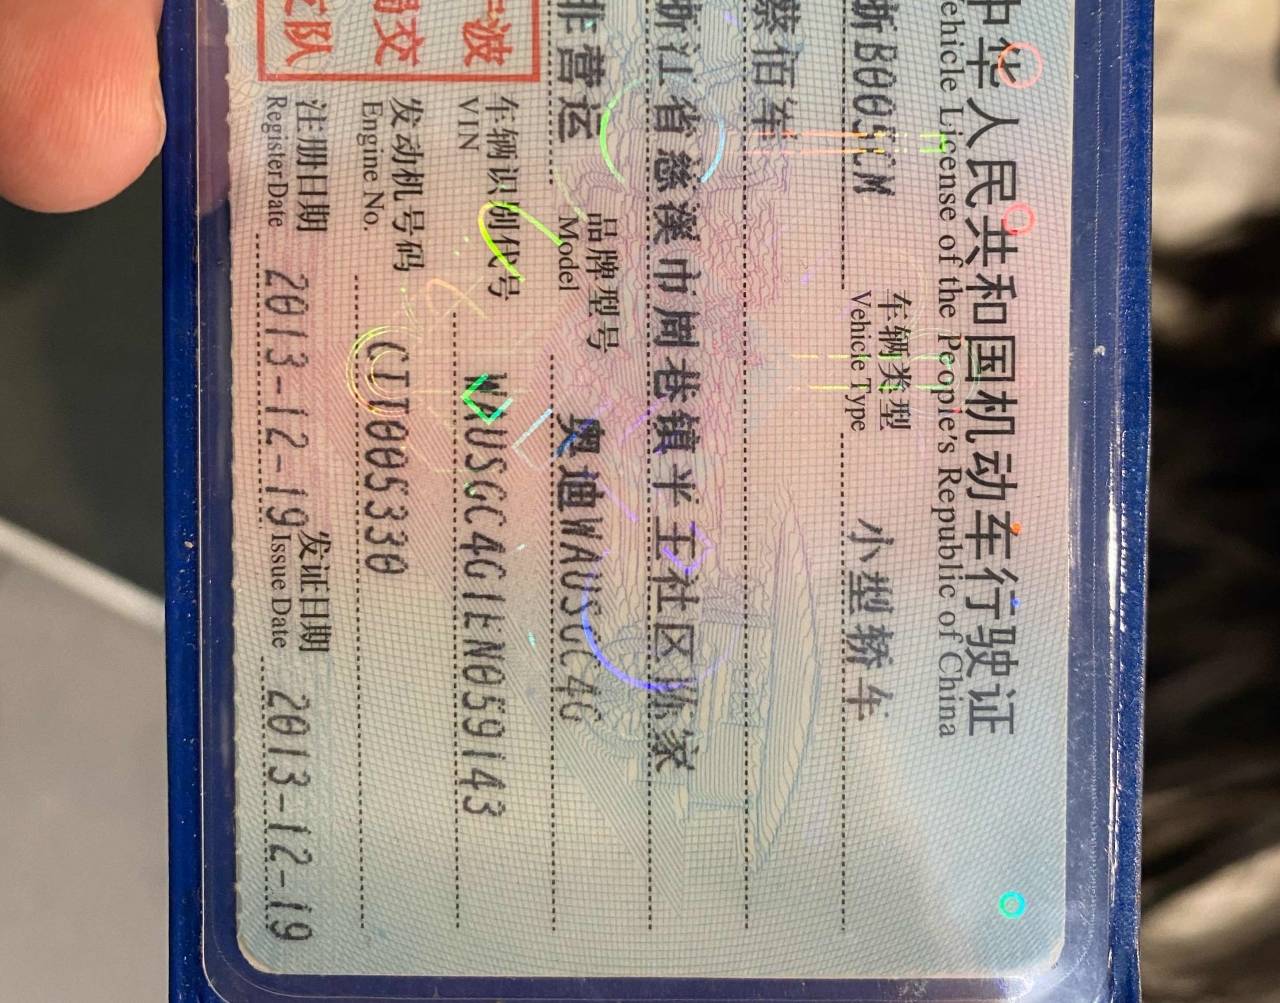 中华人民共和国机动车行驶证
Vehicle License of the People's Republic of China
浙B005CM 车辆类型 小型轿车
Vehicle Type
蔡佰军
浙江省慈溪市周巷镇平王社区 家
非营运 品牌型号 奥迪WAUSGC4G
Model
车辆识别代号 WAUSGC4G1EN059143
VIN
发动机号码 CJT005330
Engine No.
注册日期 2013-12-19 发证日期 2013-12-19
Register Date Issue Date
波
交
队